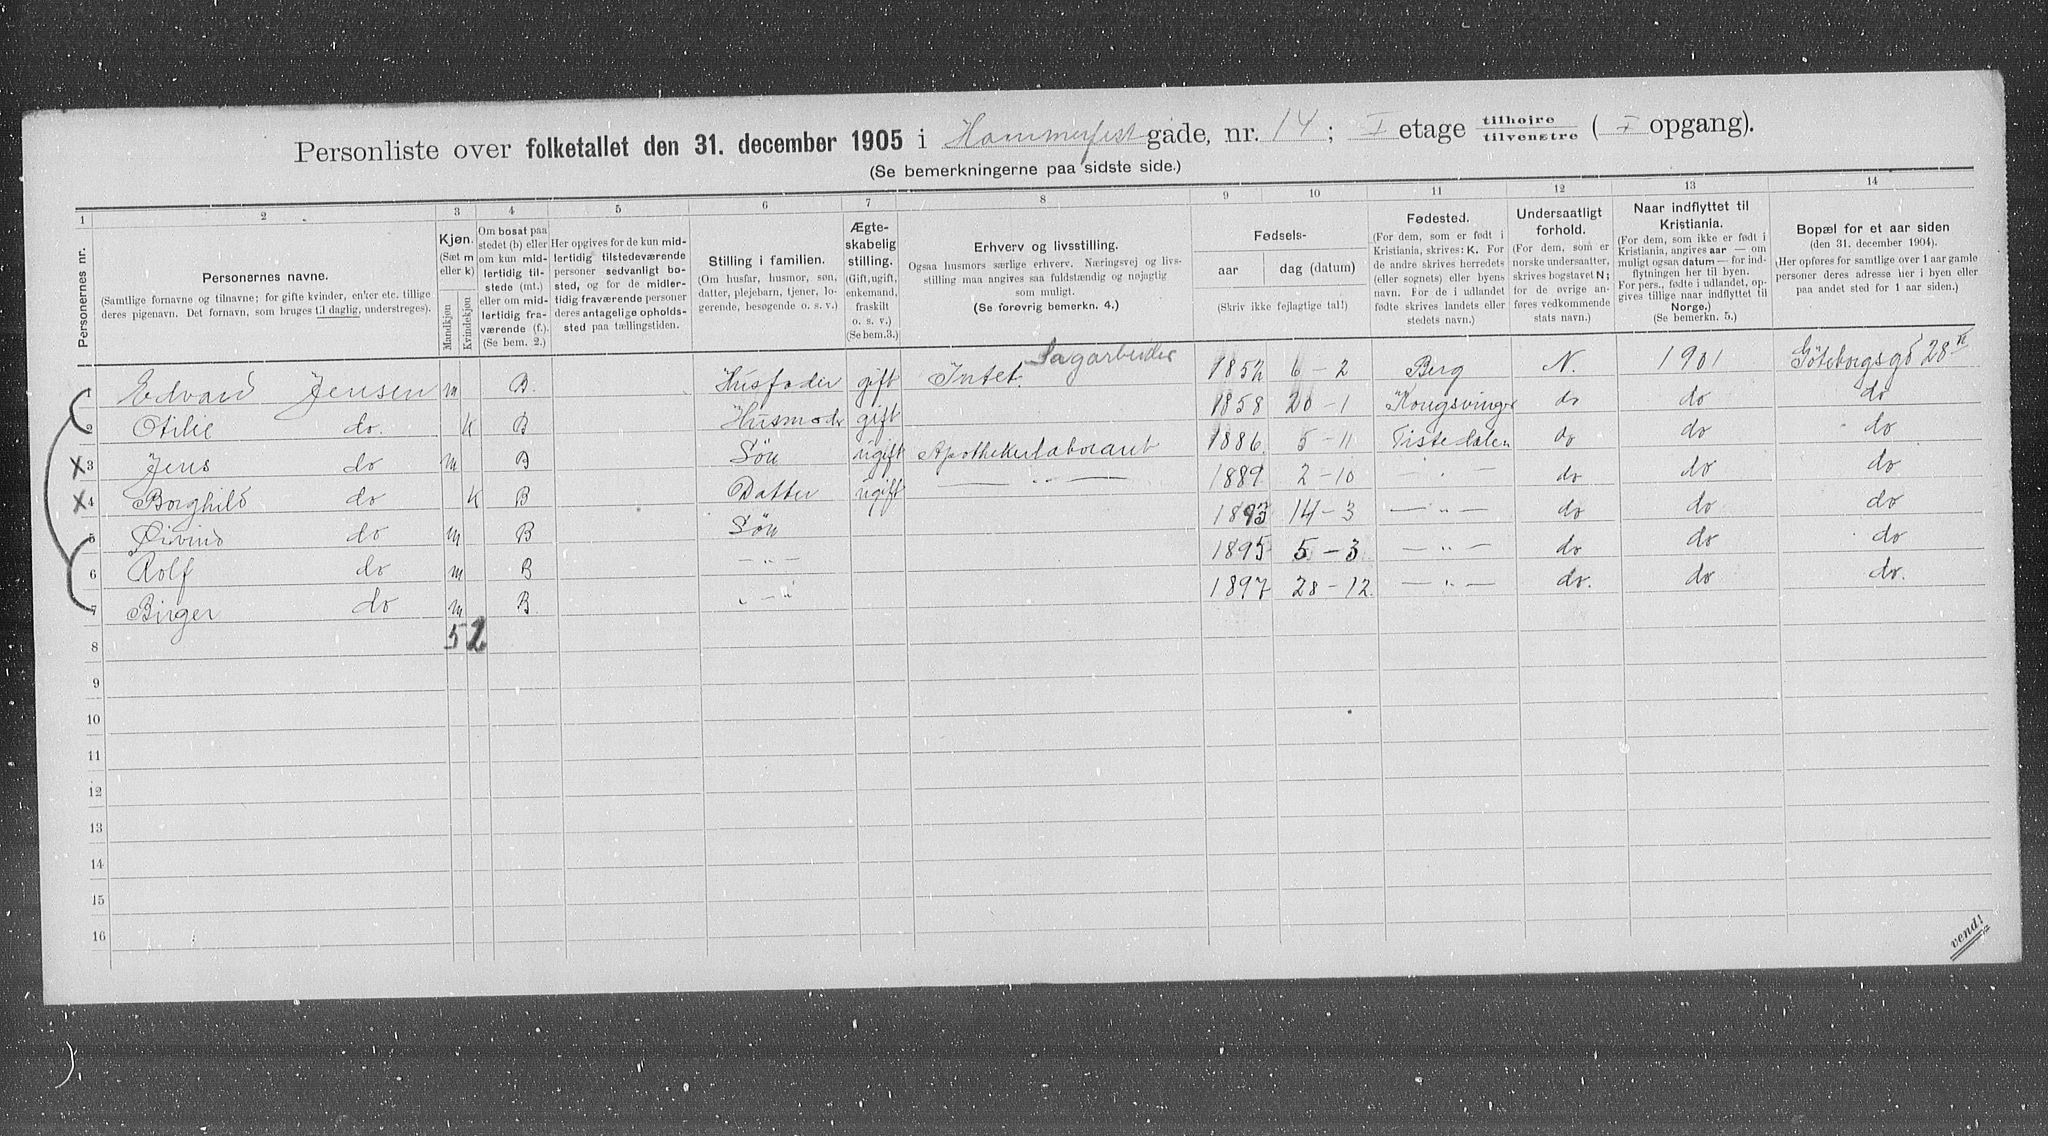 Personliste over folketallet den 31. december 1905 i Hammerfest gade, nr. 14; I etage tilhøjre tilvenstre ( I opgang).
(Se bemerkningerne paa sidste side.)
1 2 3 4 5 6 7 8 9 10 11 12 13 14
Personernes nr.
Personernes navne.
(Samtlige fornavne og tilnavne; for gifte kvinder, enker etc. tillige deres pigenavn. Det fornavn, som bruges til daglig, understreges).
Kjøn. (Sæt m eller k) Mandkjøn Kvindekjøn
Om bosat paa stedet (b) eller om kun midlertidig tilstede (mt.) eller om midlertidig fraværende (f.). (Se bem. 2.)
Her opgives for de kun midlertidig tilstedeværende personer sedvanligt bosted, og for de midlertidig fraværende personer deres antagelige opholdssted paa tællingstiden.
Stilling i familien. (Om husfar, husmor, søn, datter, plejebarn, tjener, logerende, besøgende o. s. v.)
Ægteskabelig stilling. (Gift, ugift, enkemand, fraskilt o. s. v.) (Se bem.3.)
Erhverv og livsstilling. Ogsaa husmors særlige erhverv. Næringsvej og livsstilling maa angives saa fuldstændig og nøjagtig som muligt. (Se forøvrig bemerkn. 4.)
Fødsels- aar dag (datum) (Skriv ikke fejlagtige tal!)
Fødested. (For dem, som er født i Kristiania, skrives: K. For de andre skrives herredets (eller sognets) eller byens navn. For de i udlandet fødte skrives landets eller stedets navn.)
Undersaatligt forhold. (For dem, som er norske undersaatter, skrives bogstavet N; for de øvrige anføres vedkommende stats navn.)
Naar indflyttet til Kristiania. (For dem, som ikke er født i Kristiania, angives aar — om muligt ogsaa datum — for indflytningen her til byen. For pers., fødte i udlandet, opgives tillige naar indflyttet til Norge.) (Se bemerkn. 5.)
Bopæl for et aar siden (den 31. december 1904). (Her opføres for samtlige over 1 aar gamle personer deres adresse her i byen eller paa andet sted for 1 aar siden.)
1 Edvard Jensen m B. Husfader gift Intet. Sagarbeider 1852 6-2 Berg N. 1901 Göteborgsgd 28
2 Otilie do. k B Husmoder gift 1858 20-1 Kongsvinger do do do
3 Jens do m B Søn ugift Apothekerlaborant 1886 5-11 Tistedalen do do do
4 Borghild do k B Datter ugift — " — 1889 2-10 — " — do do do
5 Øivind do m B Søn 1893 14-3 — " — do do do
6 Rolf do m B — " — 1895 5-3 — " — do do do
7 Birger do m B. " — " 1897 28-12. — " — do. do do.
8 5 2
9
10
11
12
13
14
15
16
vend!